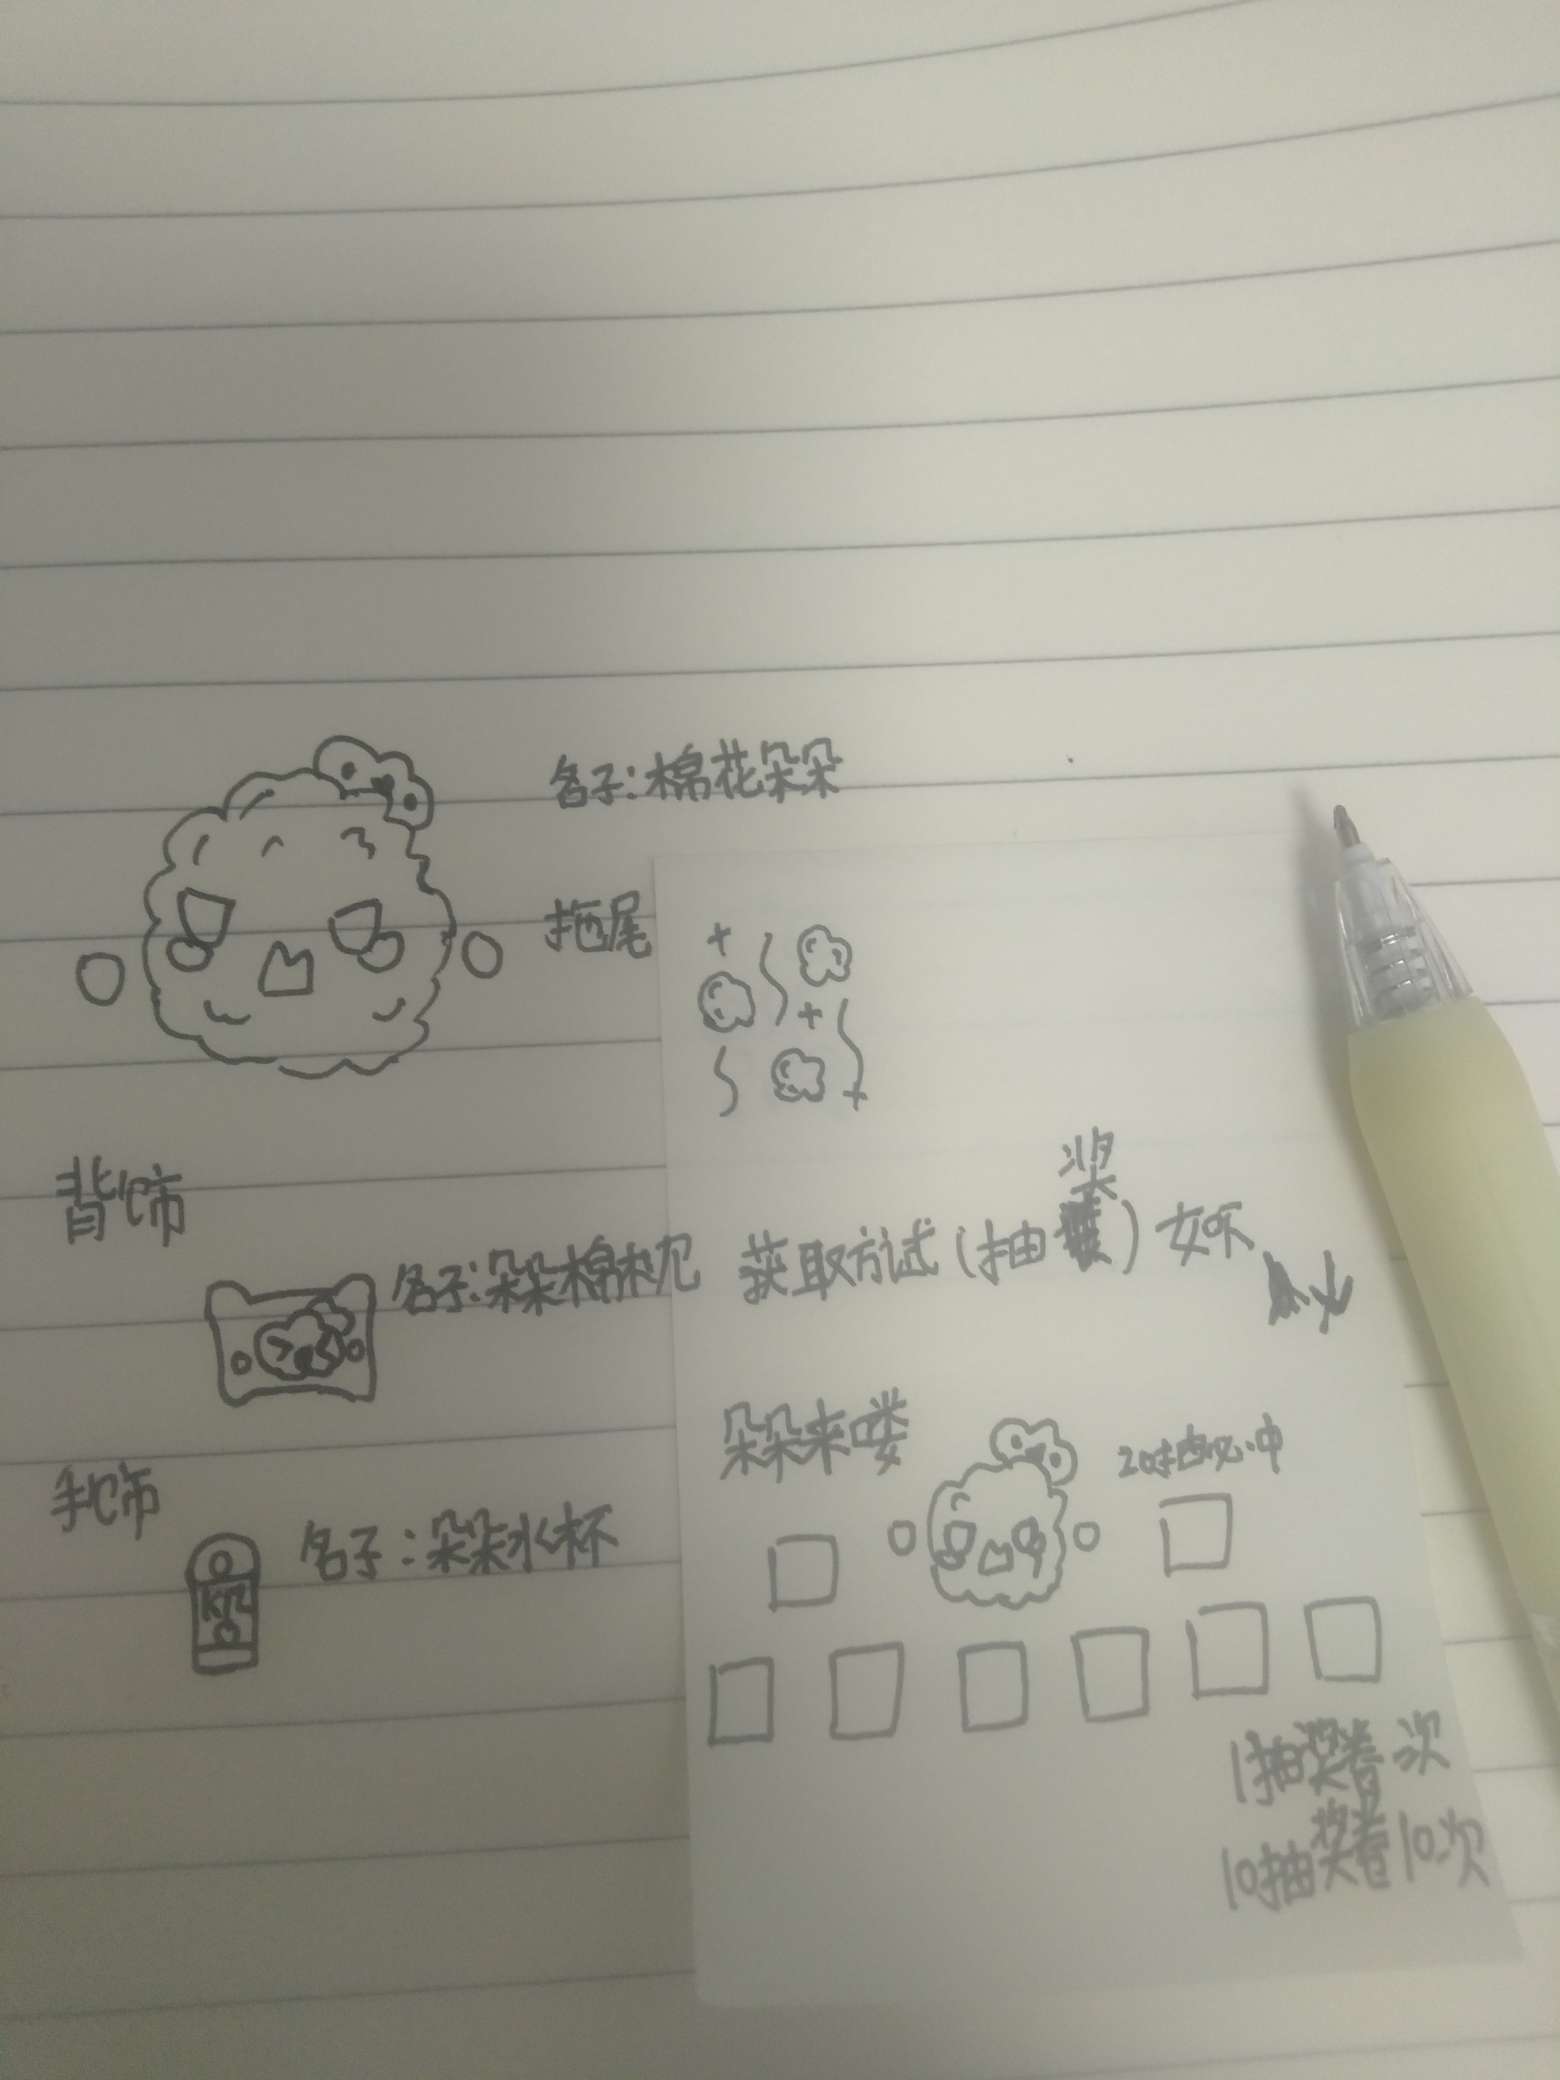 名子：棉花朵朵
拖尾
背饰
名子：朵朵棉枕
获取方试（抽奖）如下
朵朵来喽
20抽必中
手饰
名子：朵朵水杯
1抽奖卷 次
10抽奖卷10次